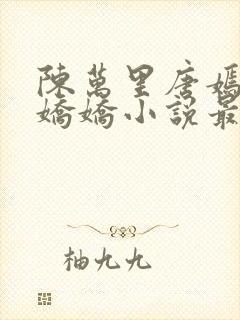 陳萬里唐嫣
嬌嬌小說最
柚九九